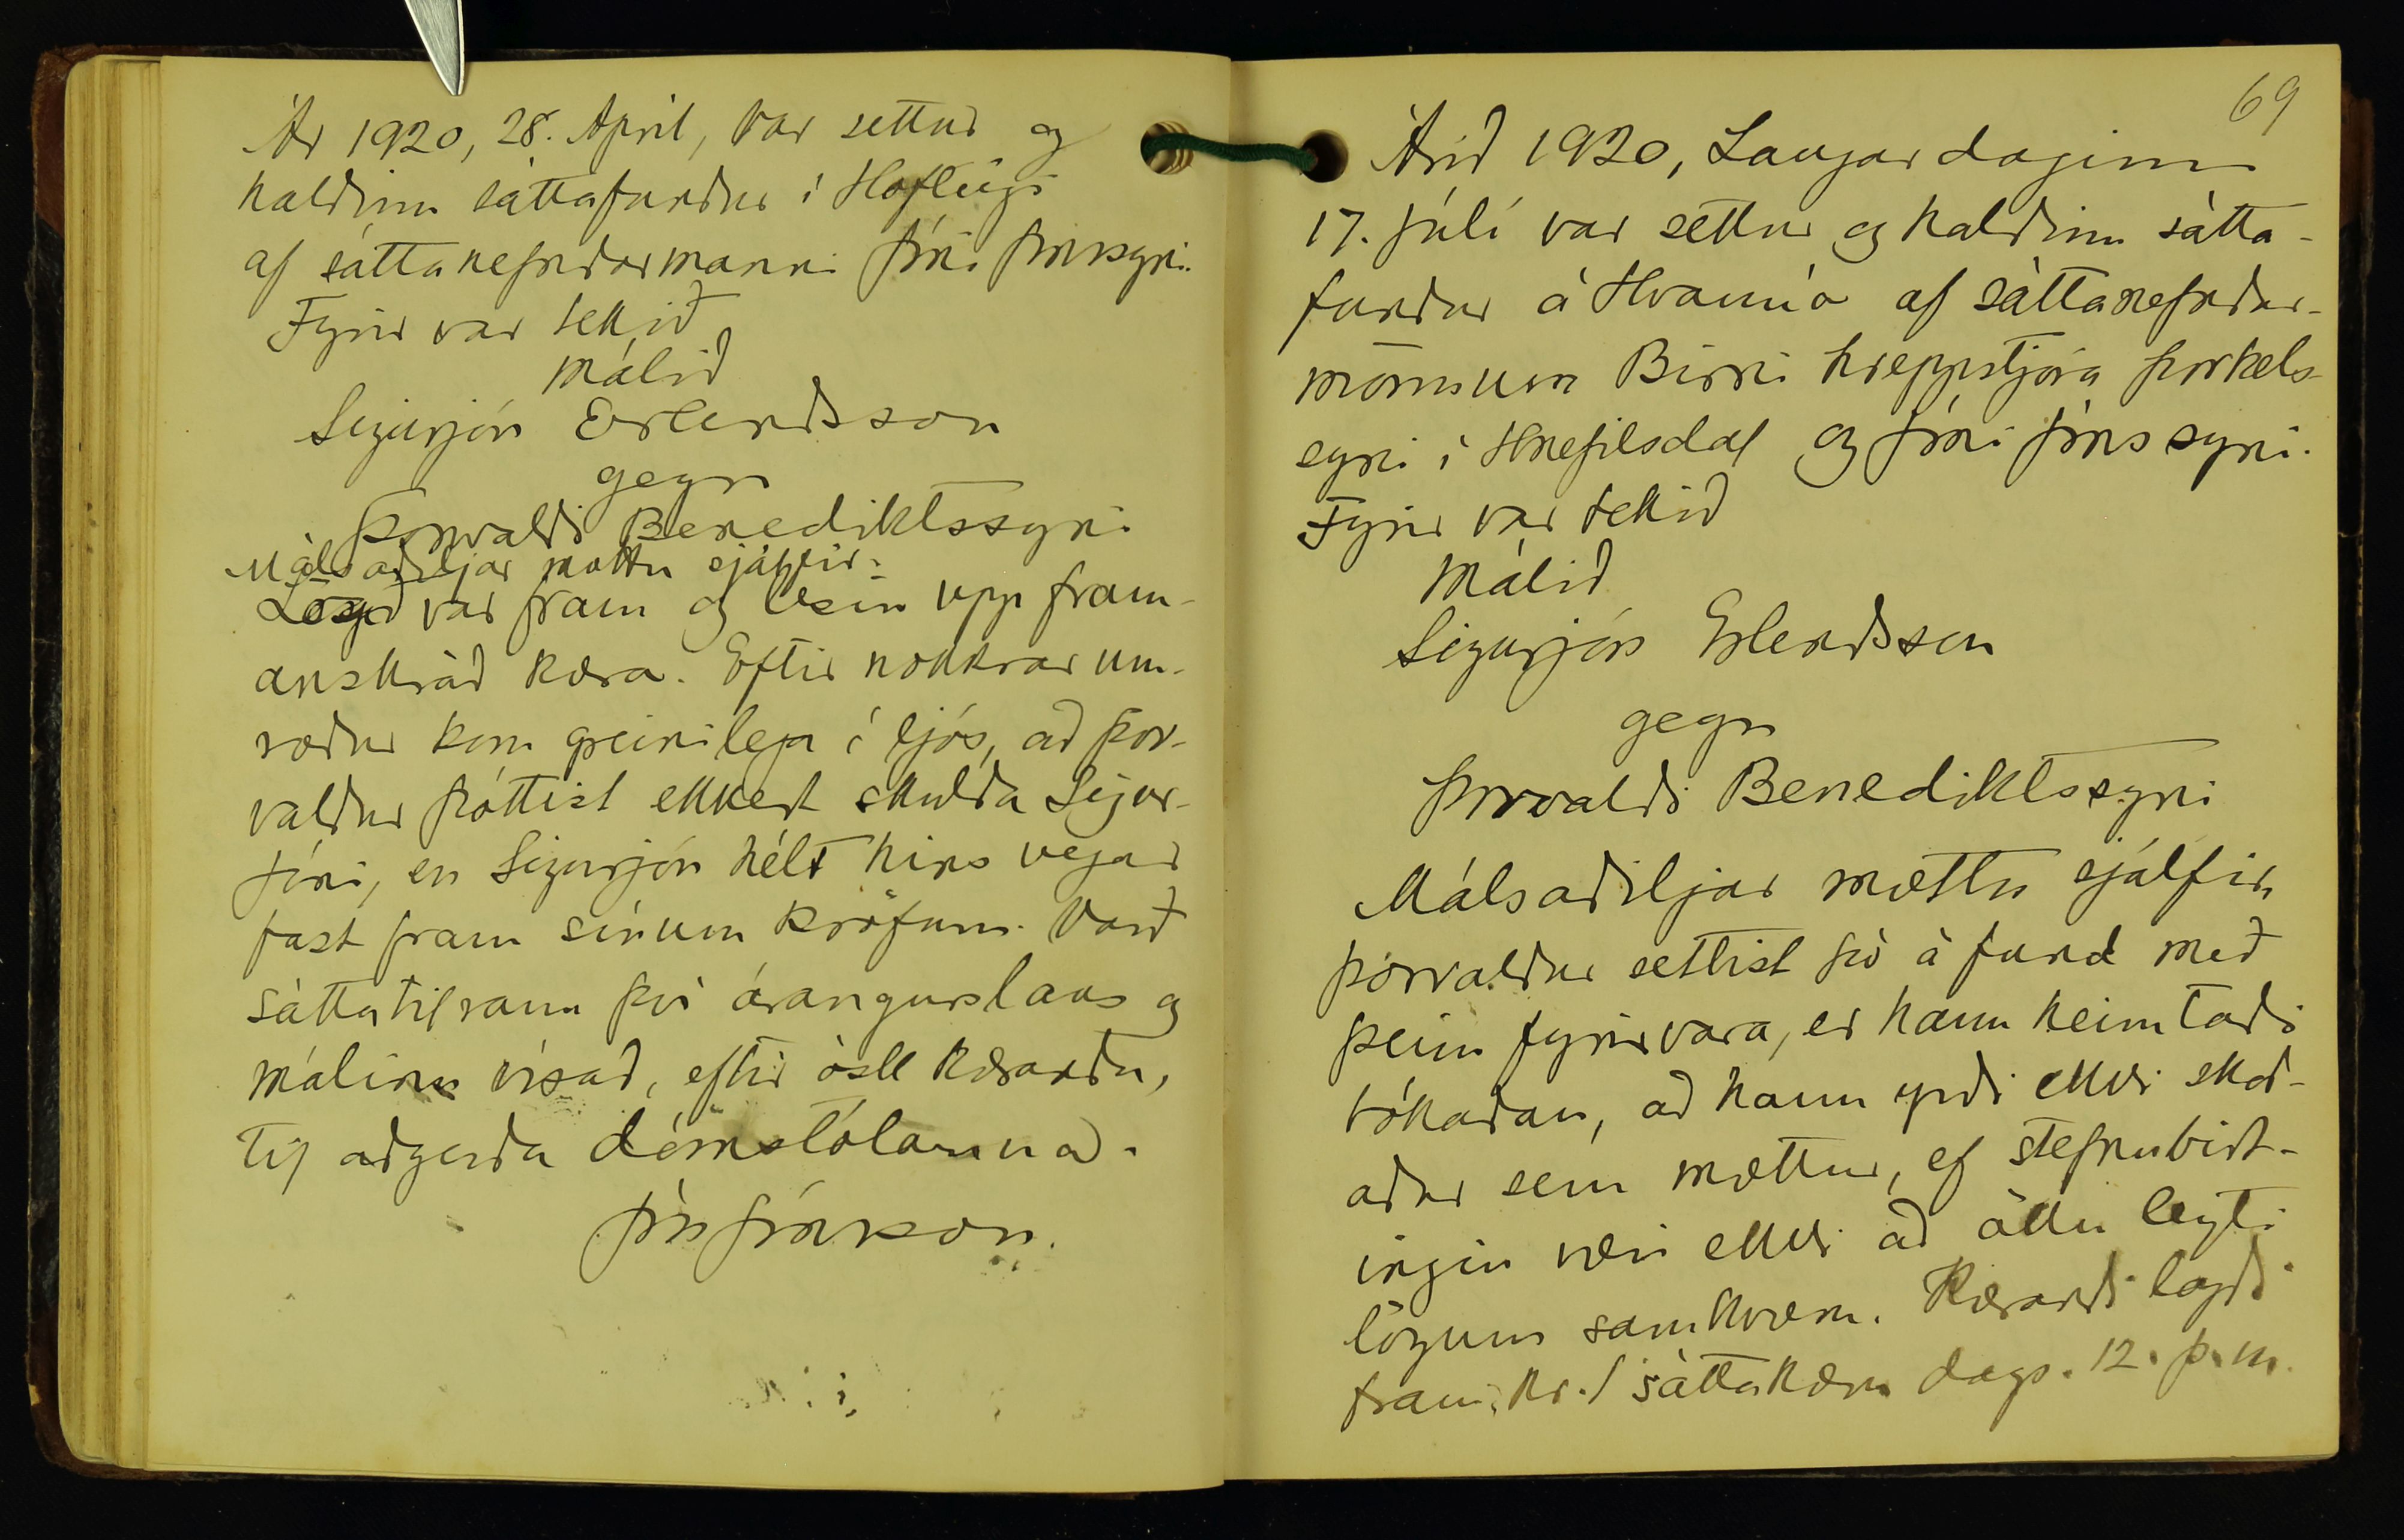 Ár 1920, 28. Apríl, var settur og
haldinn sáttafundur í Hofteigi
af sáttanefndarmanni Jóni Jónssyni.
Fyrir var tekið
Málið
Sigurjón Erlendsson
gegn
Þorvaldi Benediktssyni
Málsaðiljar mættu sjálfir.
Lögð var fram og lesin upp fram-
anskráð kæra. Eftir nokkrar um-
ræður kom greinilega í ljós, að Þor-
valdur þóttist ekkert skulda Sigur-
jóni, en Sigurjón hélt hins vegar
fast fram sínum kröfum. Varð
sáttatilraun því árangurslaus og
málinu vísað, eftir ósk kæranda,
til aðgerða dómstólanna.
Jón Jónsson.
69
Árið 1920, Laugardaginn
17. júlí var settur og haldinn sátta-
fundur á Hvanná af sáttanefndar-
mönnum Birni hreppstjóra Þorkels-
syni í Hnefilsdal og Jóni Jónssyni.
Fyrir var tekið
Málið
Sigurjón Erlendsson
gegn
Þorvaldi Benediktssyni
Málsaðiljar mættu sjálfir,
Þorvaldur settist þó á fund með
þeim fyrirvara, er hann heimtaði
bókaðan, að hann yrði ekki skoð-
aður sem mættur, ef stefnubirt-
ingin væri ekki að öllu leyti
lögum samkvæm. Kærandi lagði
fram, Nr. 1 sáttakæru dags. 12. þ.m.